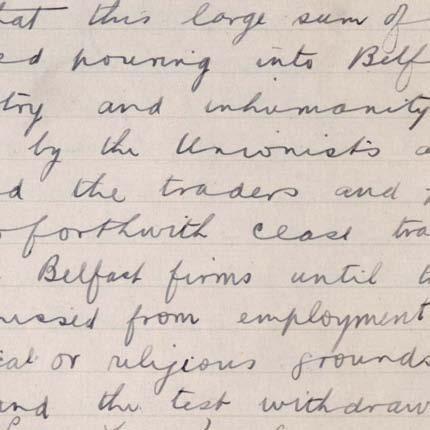 hat this large sum of
ed pouring into Belf
try and inhumanity
by the Unionists a
d the traders and
forthwith cease tra
Belfast firms until t
issed from employment
cal or religious grounds
and the test withdraw